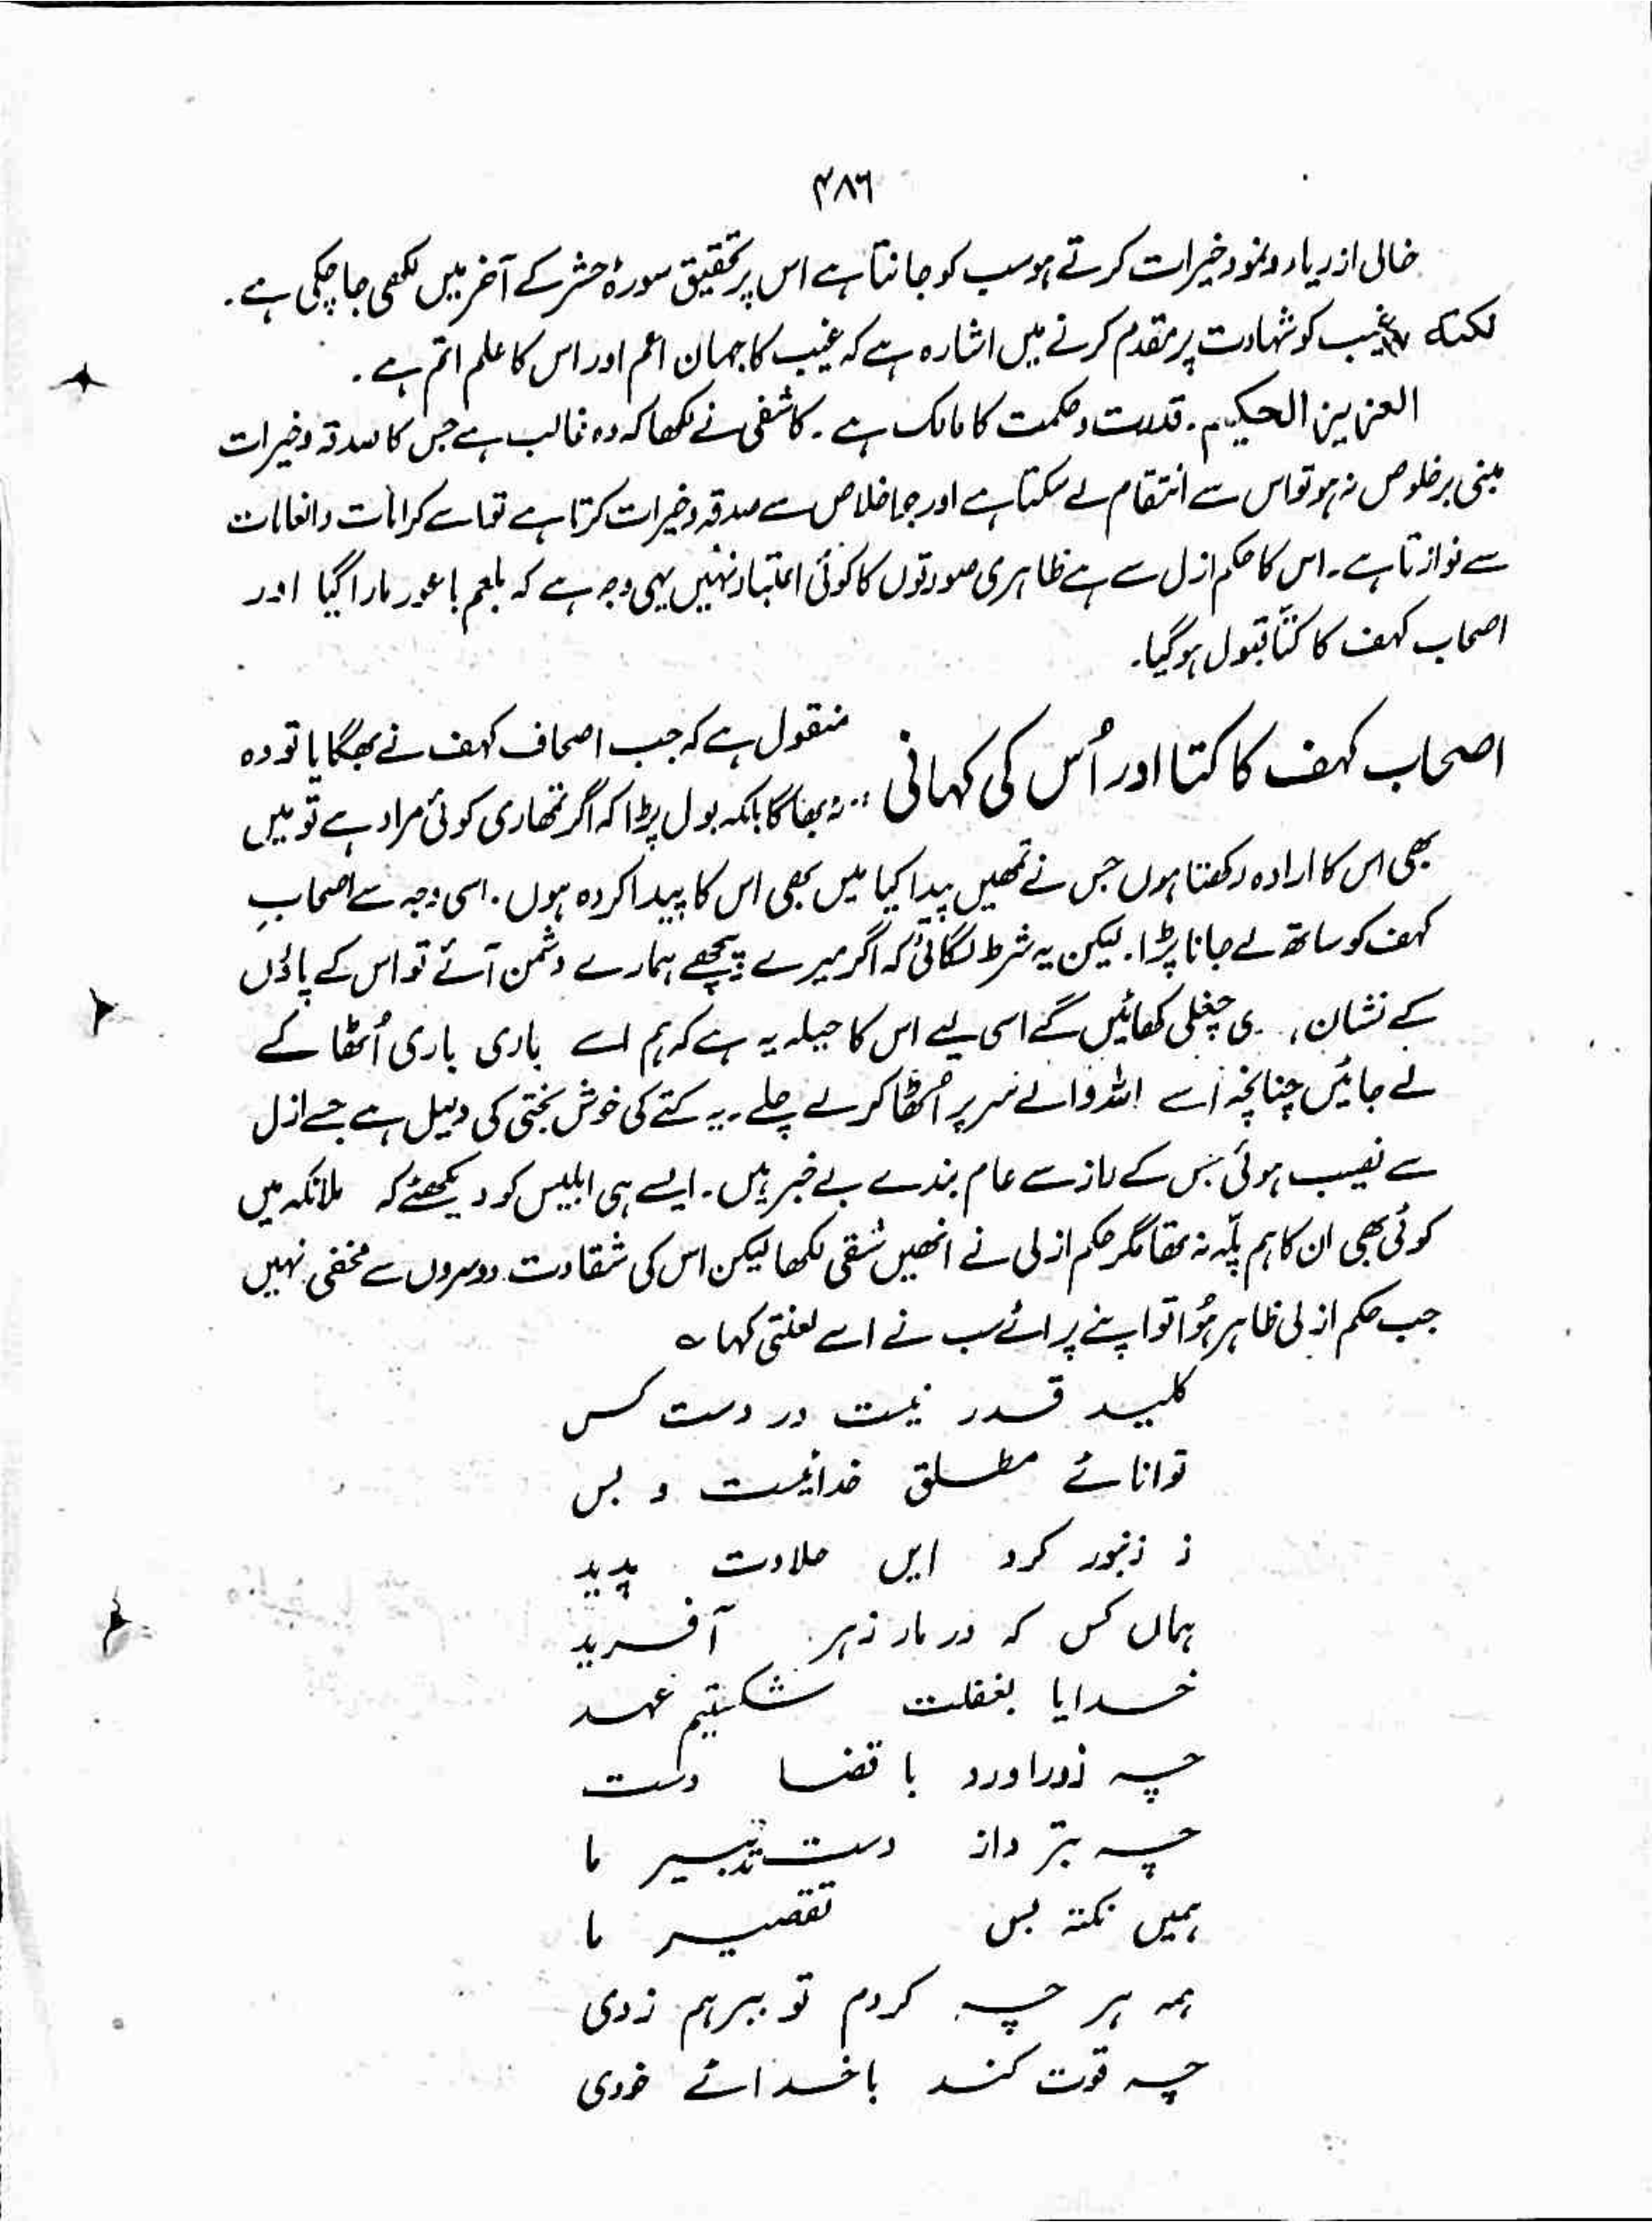 ۴۸۶
خالی از ریاء و نمود خیرات کرتے ہو سب کو جانتا ہے اس پر تحقیق سورۂ حشر کے آخر میں لکھی جا چکی ہے۔
نکتہ غیب کو شہادت پر مقدم کرنے میں اشارہ ہے کہ غیب کا جہان اعم اور اس کا علم اتم ہے۔
العزیز الحکیم۔ قدرت و حکمت کا مالک ہے۔ کاشفی نے لکھا کہ وہ غالب ہے جس کا صدقہ و خیرات
مبنی بر خلوص نہ ہو تو اس سے انتقام لے سکتا ہے اور جو اخلاص سے صدقہ و خیرات کرتا ہے تو اسے کرامات و انعامات
سے نوازتا ہے۔ اس کا حکم ازل سے ہے ظاہری صورتوں کا کوئی اعتبار نہیں یہی وجہ ہے کہ بلعم باعور مارا گیا اور
اصحاب کہف کا کتّا قبول ہو گیا۔
اصحاب کہف کا کتا اور اُس کی کہانی
منقول ہے کہ جب اصحاف کہف نے بھگایا تو وہ
نہ بھاگا بلکہ بول پڑا کہ اگر تمھاری کوئی مراد ہے تو میں
بھی اس کا ارادہ رکھتا ہوں جس نے تمھیں پیدا کیا میں بھی اس کا پیدا کردہ ہوں۔ اسی وجہ سے اصحابِ
کہف کو ساتھ لے جانا پڑا۔ لیکن یہ شرط لگائی کہ اگر میرے پیچھے ہمارے دشمن آئے تو اس کے پاؤں
کے نشان ی چغلی کھائیں گے اسی لیے اس کا حیلہ یہ ہے کہ ہم اسے باری باری اُٹھا کے
لے جائیں چنانچہ اُسے اللہ والے سر پر اُٹھا کر لے چلے۔ یہ کتے کی خوش بختی کی دلیل ہے جسے ازل
سے نصیب ہوئی جس کے راز سے عام بندے بے خبر ہیں۔ ایسے ہی ابلیس کو دیکھئے کہ ملائکہ میں
کوئی بھی ان کا ہم پلّہ نہ تھا مگر حکم ازلی نے انھیں شقی لکھا لیکن اس کی شقاوت دوسروں سے مخفی نہیں
جب حکم ازلی ظاہر ہُوا تو اپنے پرائے سب نے اسے لعنتی کہا ؎
کلید قدر نیست در دست کس
توانائے مطلق خدائیست و بس
ز زنبور کرد ایں حلاوت پدید
ہماں کس کہ در مار زہر آفرید
خدایا بغفلت شکستیم عہد
چہ زور آورد با قضا دست
چہ بر داز دست تدبیر ما
ہمیں نکتہ بس تقصیر ما
ہمہ ہر چہ کردم تو بر ہم زدی
چہ قوت کند با خدائے خودی